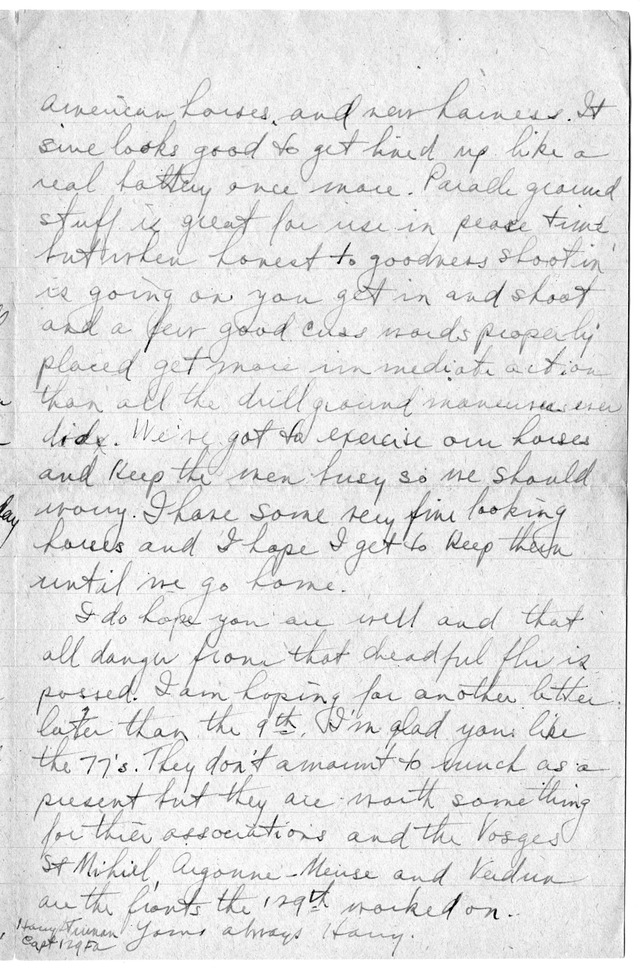 American horses, and new harness. It
sure looks good to get lined up like a
real battery once more. Parade ground
stuff is great for use in peace time
but when honest to goodness shootin
is going on you get in and shoot
and a few good cuss words properly
placed get more immediate action
than all the drill ground maneuvers ever
did. We've got to exercise our horses
and keep the men busy so we should
worry. I have some very fine looking
horses and I hope I get to keep them
until we go home.
I do hope you are well and that
all danger from that dreadful flu is
passed. I am hoping for another letter
later than the 9th. I'm glad you like
the 77's. They don't amount to much as a
present but they are worth something
for thier associations and the Vosges
St Mihiel, Argonne-Meuse and Verdun
are the fronts the 129th worked on.
Yours always Harry.
Harry Truman
Capt 129 FA
lay